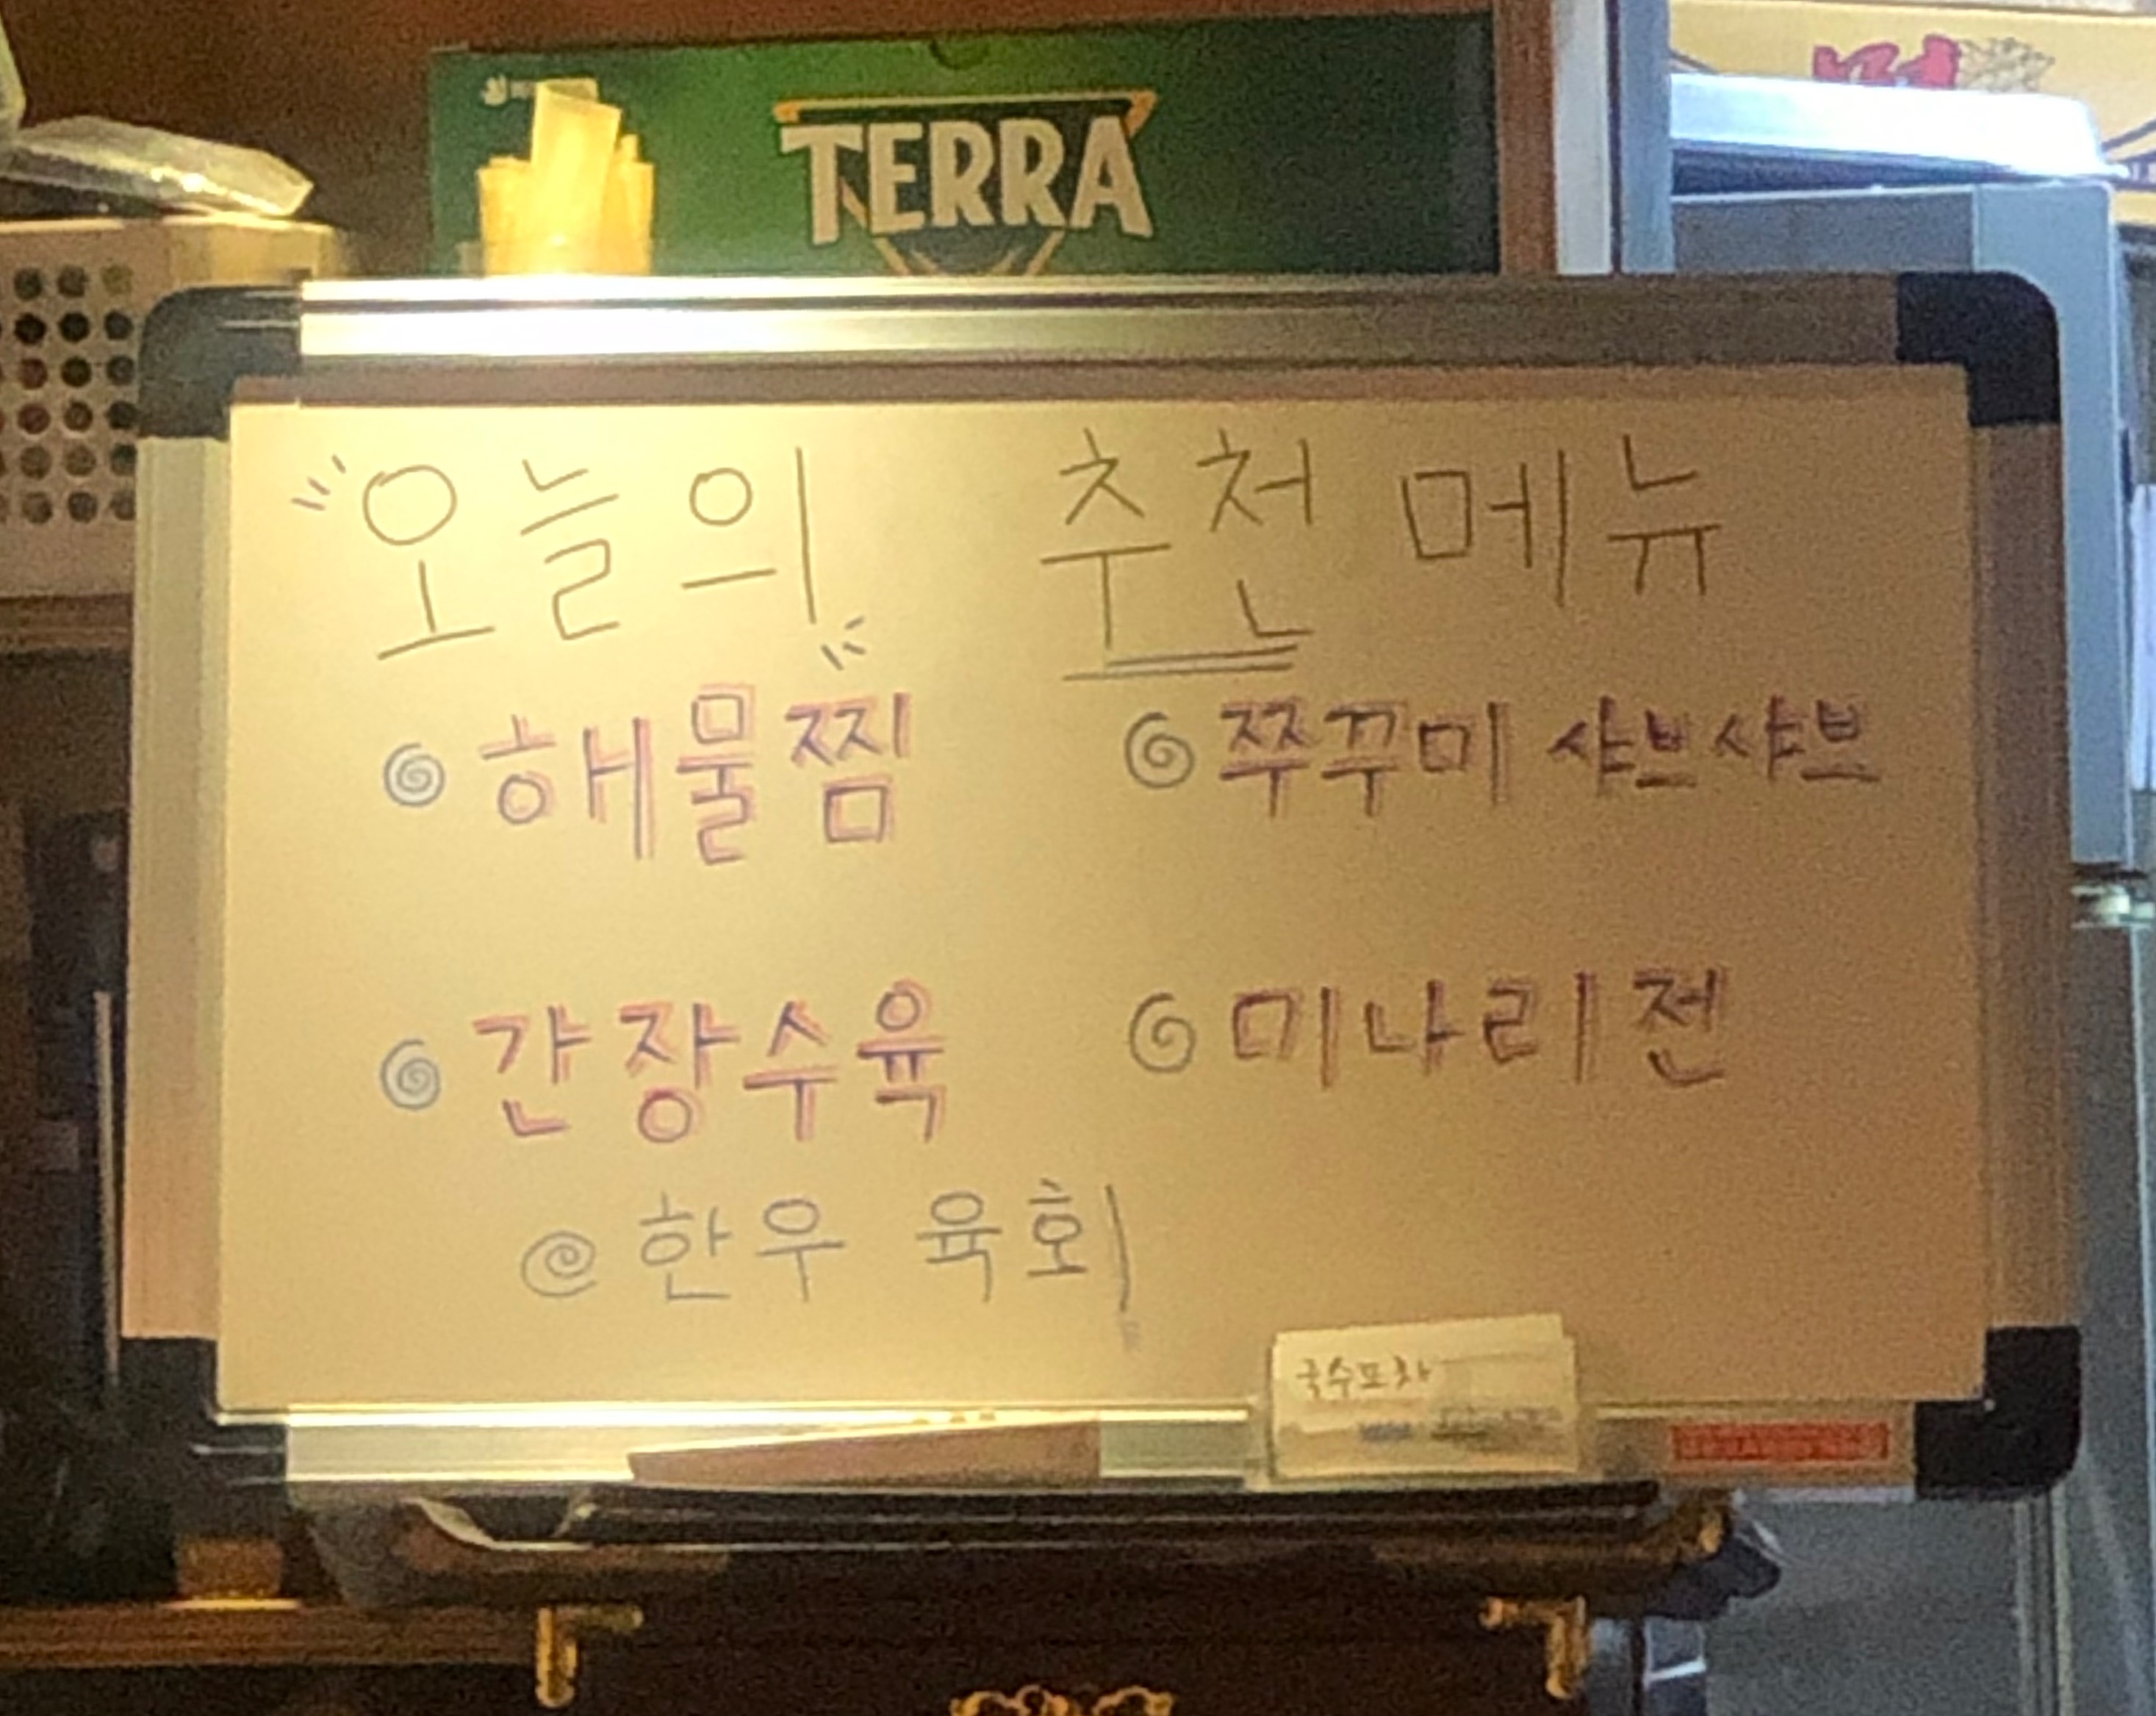 TERRA
오늘의 추천 메뉴
해물찜
쭈꾸미 샤브샤브
간장수육
미나리전
한우 육회
국수포차